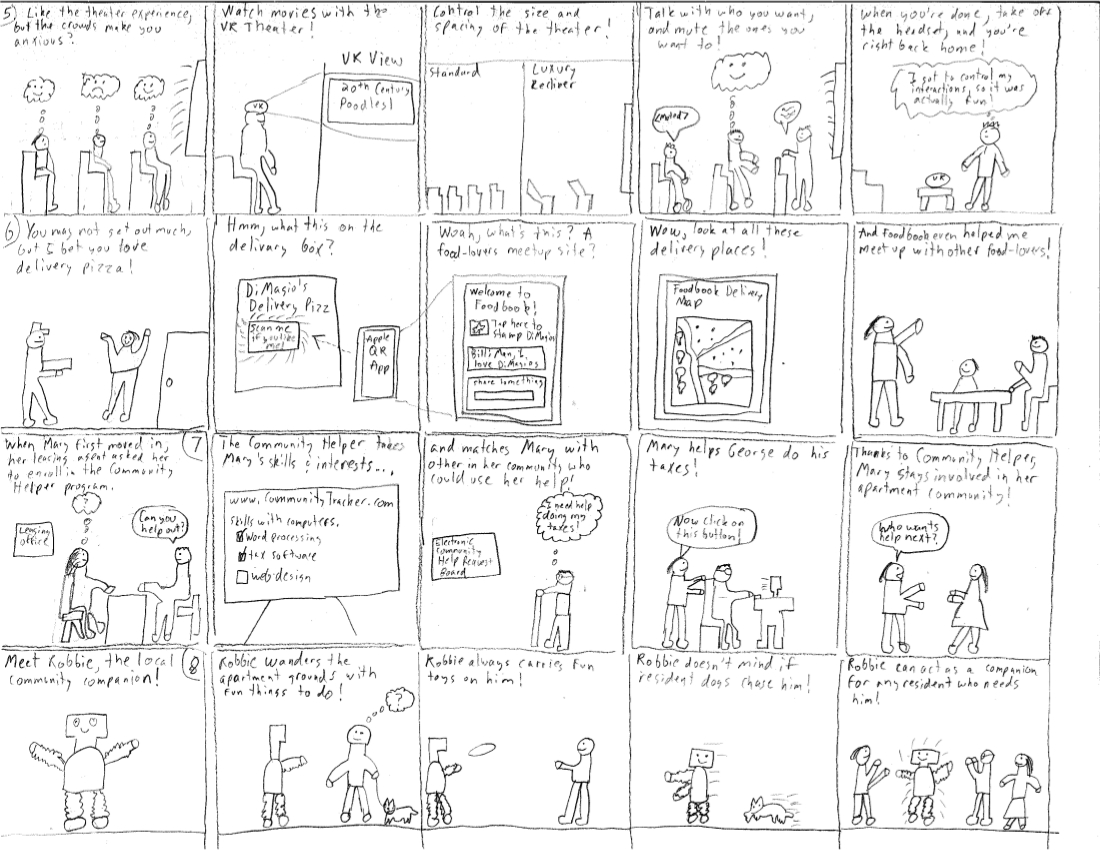 5) Like the theater experience,
but the crowds make you
anxious?
Watch movies with the
VR Theater!
VR View
20th Century
Poodles!
VR
Control the size and
spacing of the theater!
Standard
Luxury
Recliner
Talk with who you want,
and mute the ones you
want to!
When you're done, take off
the headset, and you're
right back home!
I got to control my
interactions, so it was
actually fun!
VR
6) You may not get out much,
but I bet you love
delivery pizza!
Hmm, what this on the
delivary box?
DiMagio's
Delivery Pizz
Scan me
if you like
me!
Apple
QR
App
Woah, what's this? A
food-lovers meetup site?
Welcome to
Foodbook!
Tap here to
stamp DiMagios
Bill: Man, I
love DiMagios
share something
Wow, look at all these
delivery places!
Foodbook Delivery
Map
And Foodbook even helped me
meet up with other food-lovers!
When Mary first moved in, 7
her leasing agent asked her
to enroll in the Community
Helper program.
?
Leasing
office
Can you
help out?
The Community Helper takes
Mary's skills & interests...,
www.CommunityTracker.com
Skills with computers.
word processing
tax software
web design
and matches Mary with
other in her community who
could use her help!
I need help
doing my
taxes!
Electronic
Community
Help Request
Board
Mary helps George do his
taxes!
Now click on
this button!
Thanks to Community Helper,
Mary stays involved in her
apartment community!
Who wants
help next?
Meet Robbie, the local 8
community companion!
Robbie wanders the
apartment grounds with
fun things to do!
?
Robbie always carries fun
toys on him!
Robbie doesn't mind if
resident dogs chase him!
Robbie can act as a companion
for any resident who needs
him!